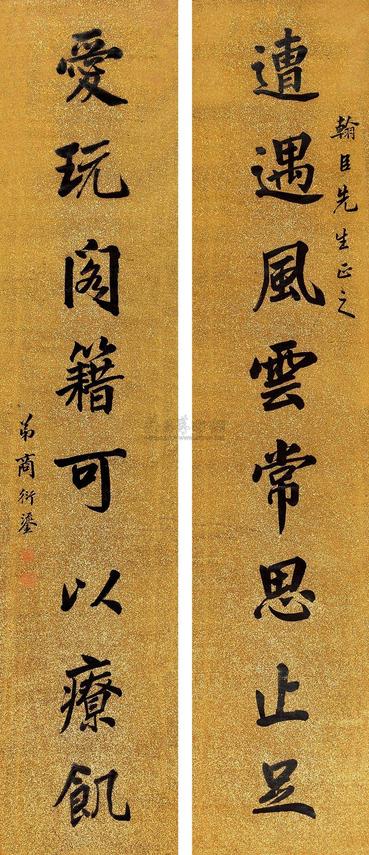 翰臣先生正之
遭遇風雲常思止足
愛玩閣籍可以療飢
弟商衍鎏